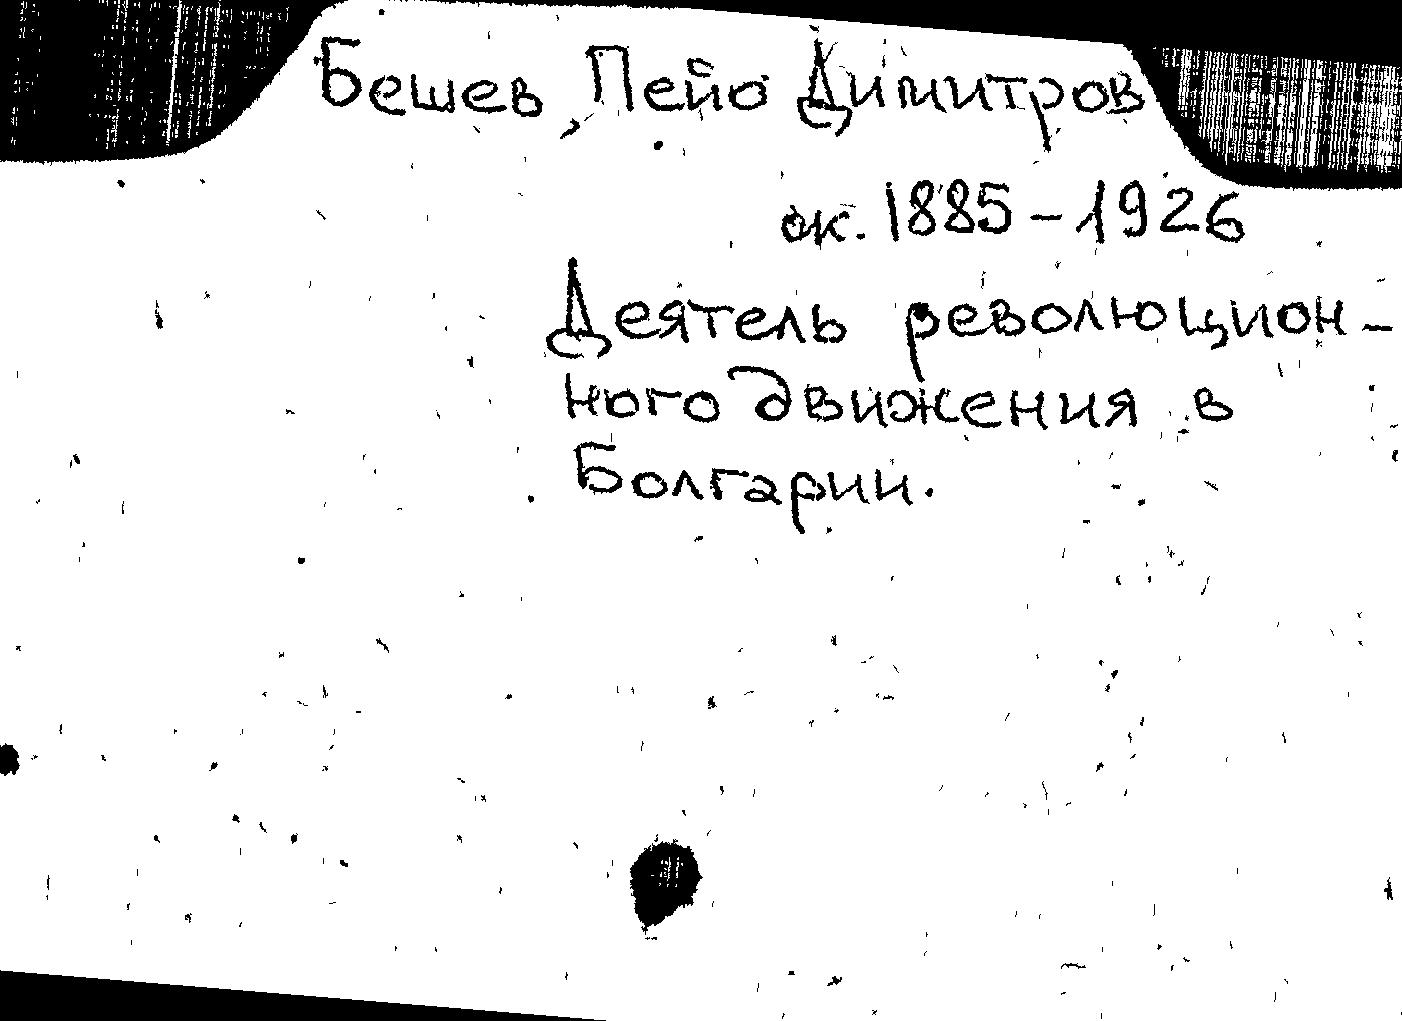 Бешев, Пейо Димитров
ок. 1885 - 1926
Деятель революцион-
ного движения в
Болгарии.